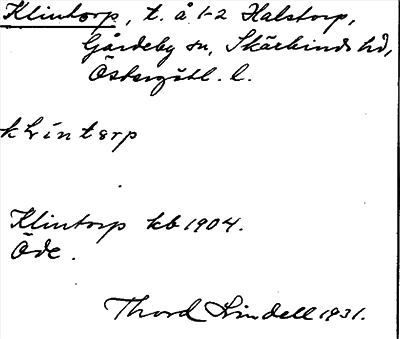 Klintorp, t. å 1-2 Halstorp,
Gårdeby sn, Skärkinds hd,
Östergötl. l.
klintorp
Klintorp kb 1904.
Öde.
Thord Lindell 1931.